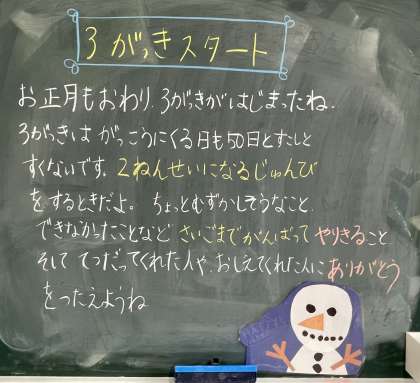 3がっきスタート
お正月もおわり、3がっきがはじまったね。
3がっきは がっこうにくる日も50日とすこしと
すくないです。2ねんせいになるじゅんび
をするときだよ。ちょっとむずかしそうなこと、
できなかったことなど さいごまでがんばって やりきること
そして てつだってくれた人や、おしえてくれた人に ありがとう
をつたえようね